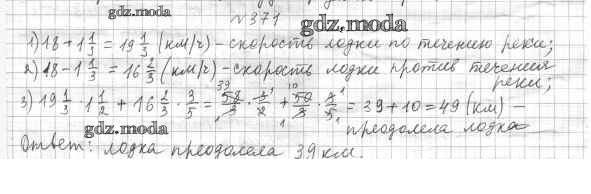 gdz.moda
№371
gdz.moda
1) 18 + 1 1/3 = 19 1/3 (км/ч) - скорость лодки по течению реки;
2) 18 - 1 1/3 = 16 2/3 (км/ч) - скорость лодки против течения
реки;
3) 19 1/3 · 1 1/2 + 16 2/3 · 3/5 = 58/3 · 3/2 + 50/3 · 3/5 = 39 + 10 = 49 (км) -
gdz.moda
преодолела лодка
Ответ: лодка преодолела 39 км.